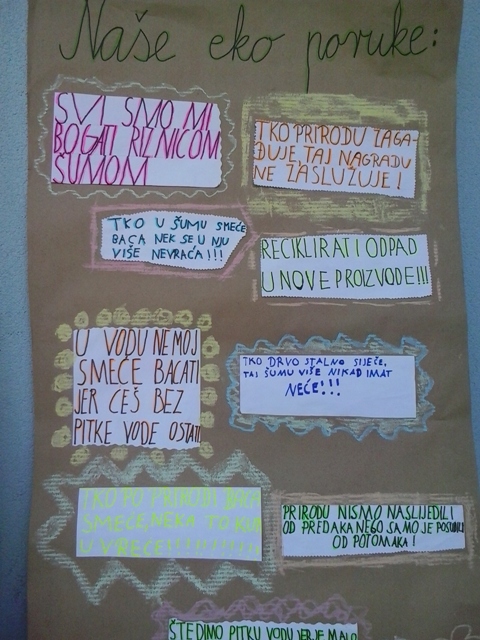 Naše eko poruke:
SVI SMO MI
BOGATI RIZNICOM
ŠUMOM
TKO PRIRODU ZAGA-
ĐUJE, TAJ NAGRADU
NE ZASLUŽUJE!
TKO U ŠUMU SMEĆE
BACA NEK SE U NJU
VIŠE NEVRAĆA!!!
RECIKLIRATI OTPAD
U NOVE PROIZVODE!!!
U VODU NEMOJ
SMEĆE BACATI
JER ĆEŠ BEZ
PITKE VODE OSTATI
TKO DRVO STALNO SIJEČE,
TAJ ŠUMU VIŠE NIKAD IMAT
NEĆE!!!
TKO PO PRIRODI BACA
SMEĆE, NEKA TO
U VREĆE!!!!!!!!!!
PRIRODU NISMO NASLIJEDILI
OD PREDAKA NEGO SAMO JE POSUDILI
OD POTOMAKA!
ŠTEDIMO PITKU VODU JER JE MALO